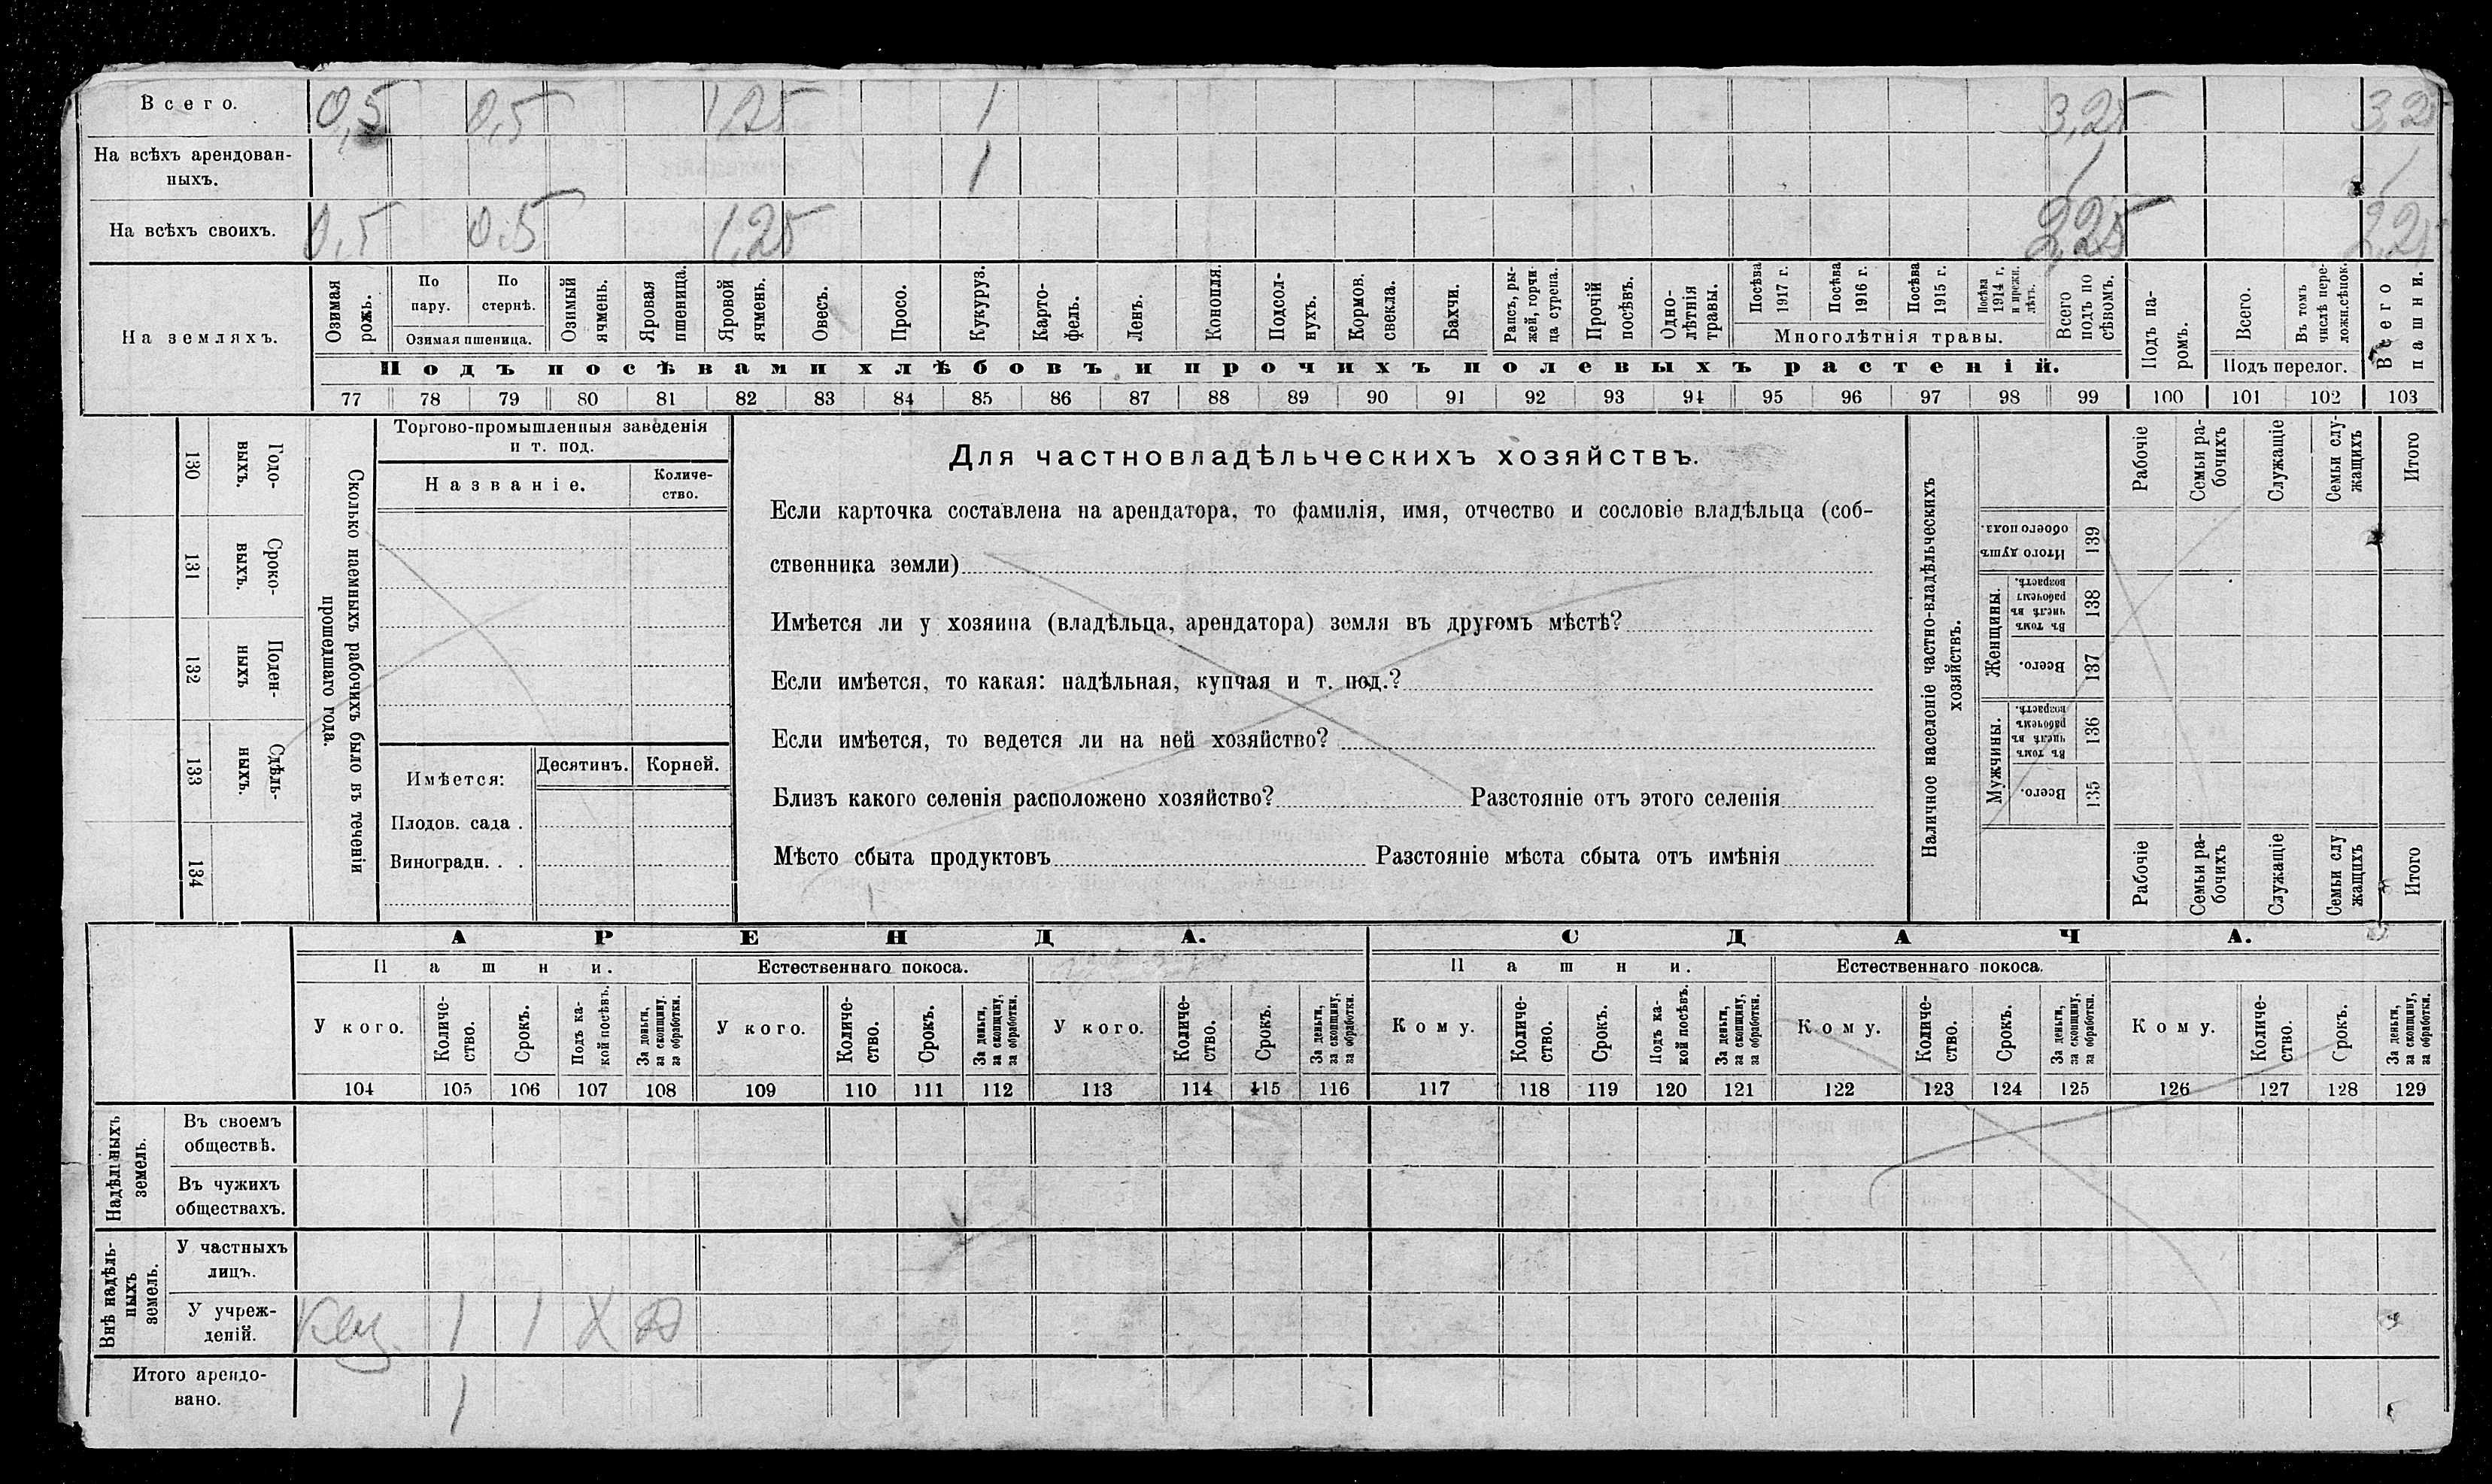 Всего. 0,5 0,5 1,25 1 3,25 3,25
На всѣхъ арендован-
ныхъ. 1 1 1
На всѣхъ своихъ. 0,5 0.5 1,25 2,25 2,25
На земляхъ.
Озимая рожь.
По пару.
По стернѣ.
Озимая пшеница.
Озимый ячмень.
Яровая пшеница.
Яровой ячмень.
Овесъ.
Просо.
Кукуруз.
Карто-
фель.
Ленъ.
Конопля.
Подсол-
нухъ.
Кормов. свекла.
Бахчи.
Рапсъ, ры-
жей, горчи
ца сурепа.
Прочій посѣвъ.
Одно-
лѣтнія
травы.
Посѣва 1917 г.
Посѣва 1916 г.
Посѣва 1915 г.
Посѣва
1914 г.
и прежн.
лѣтъ.
Многолѣтнія травы.
Всего
подъ по
сѣвомъ.
Подъ па-
ромъ.
Всего.
Въ томъ
числѣ пере-
ложн.сѣнок.
Подъ перелог.
Всего пашни.
Подъ посѣвами хлѣбовъ и прочихъ полевыхъ растеній.
77 78 79 80 81 82 83 84 85 86 87 88 89 90 91 92 93 94 95 96 97 98 99 100 101 102 103
130 Годо-
выхъ.
131 Сроко-
выхъ.
132 Поден-
ныхъ
133 Сдѣль-
ныхъ.
134
Сколько наемныхъ рабочихъ было въ теченіи
прошедшаго года.
Торгово-промышленныя заведенія
и т. под.
Названіе.
Количе-
ство.
Имѣется:
Десятинъ. Корней.
Плодов. сада .
Виноградн. . .
Для частновладѣльческихъ хозяйствъ.
Если карточка составлена на арендатора, то фамилія, имя, отчество и сословіе владѣльца (соб-
ственника земли)
Имѣется ли у хозяина (владѣльца, арендатора) земля въ другомъ мѣстѣ?
Если имѣется, то какая: надѣльная, купчая и т. под.?
Если имѣется, то ведется ли на ней хозяйство?
Близъ какого селенія расположено хозяйство? Разстояніе отъ этого селенія
Мѣсто сбыта продуктовъ Разстояніе мѣста сбыта отъ имѣнія
Наличное населеніе частно-владѣльческихъ
хозяйствъ.
Рабочіе
Семьи ра-
бочихъ
Служащіе
Семьи слу-
жащихъ
Итого
Итого душъ
обоего пола.
139
Женщины.
Въ томъ
числѣ въ
рабочемъ
возрастѣ.
138
Всего.
137
Мужчины.
Въ томъ
числѣ въ
рабочемъ
возрастѣ.
136
Всего.
135
Рабочіе
Семьи ра-
бочихъ
Служащіе
Семьи слу
жащихъ
Итого
АРЕНДА. СДАЧА.
Пашни. Естественнаго покоса. Пашни. Естественнаго покоса.
У кого.
Количе-
ство.
Срокъ.
Подъ ка-
кой посѣвъ.
За деньги,
за скопщину,
за обработки.
У кого.
Количе-
ство.
Срокъ.
За деньги,
за скопщину,
за обработки.
У кого.
Количе-
ство.
Срокъ.
За деньги,
за скопщину,
за обработки.
Кому.
Количе-
ство.
Срокъ.
Подъ ка-
кой посѣвъ.
За деньги,
за скопщину,
за обработки.
Кому.
Количе-
ство.
Срокъ.
За деньги,
за скопщину,
за обработки.
Кому.
Количе-
ство.
Срокъ.
За деньги,
за скопщину,
за обработки.
104 105 106 107 108 109 110 111 112 113 114 115 116 117 118 119 120 121 122 123 124 125 126 127 128 129
Надѣльныхъ
земель.
Въ своемъ
обществѣ.
Въ чужихъ
обществахъ.
Внѣ надѣль-
ныхъ
земель.
У частныхъ
лицъ.
У учреж-
деній. 1 1 Х
Итого арендо-
вано. 1